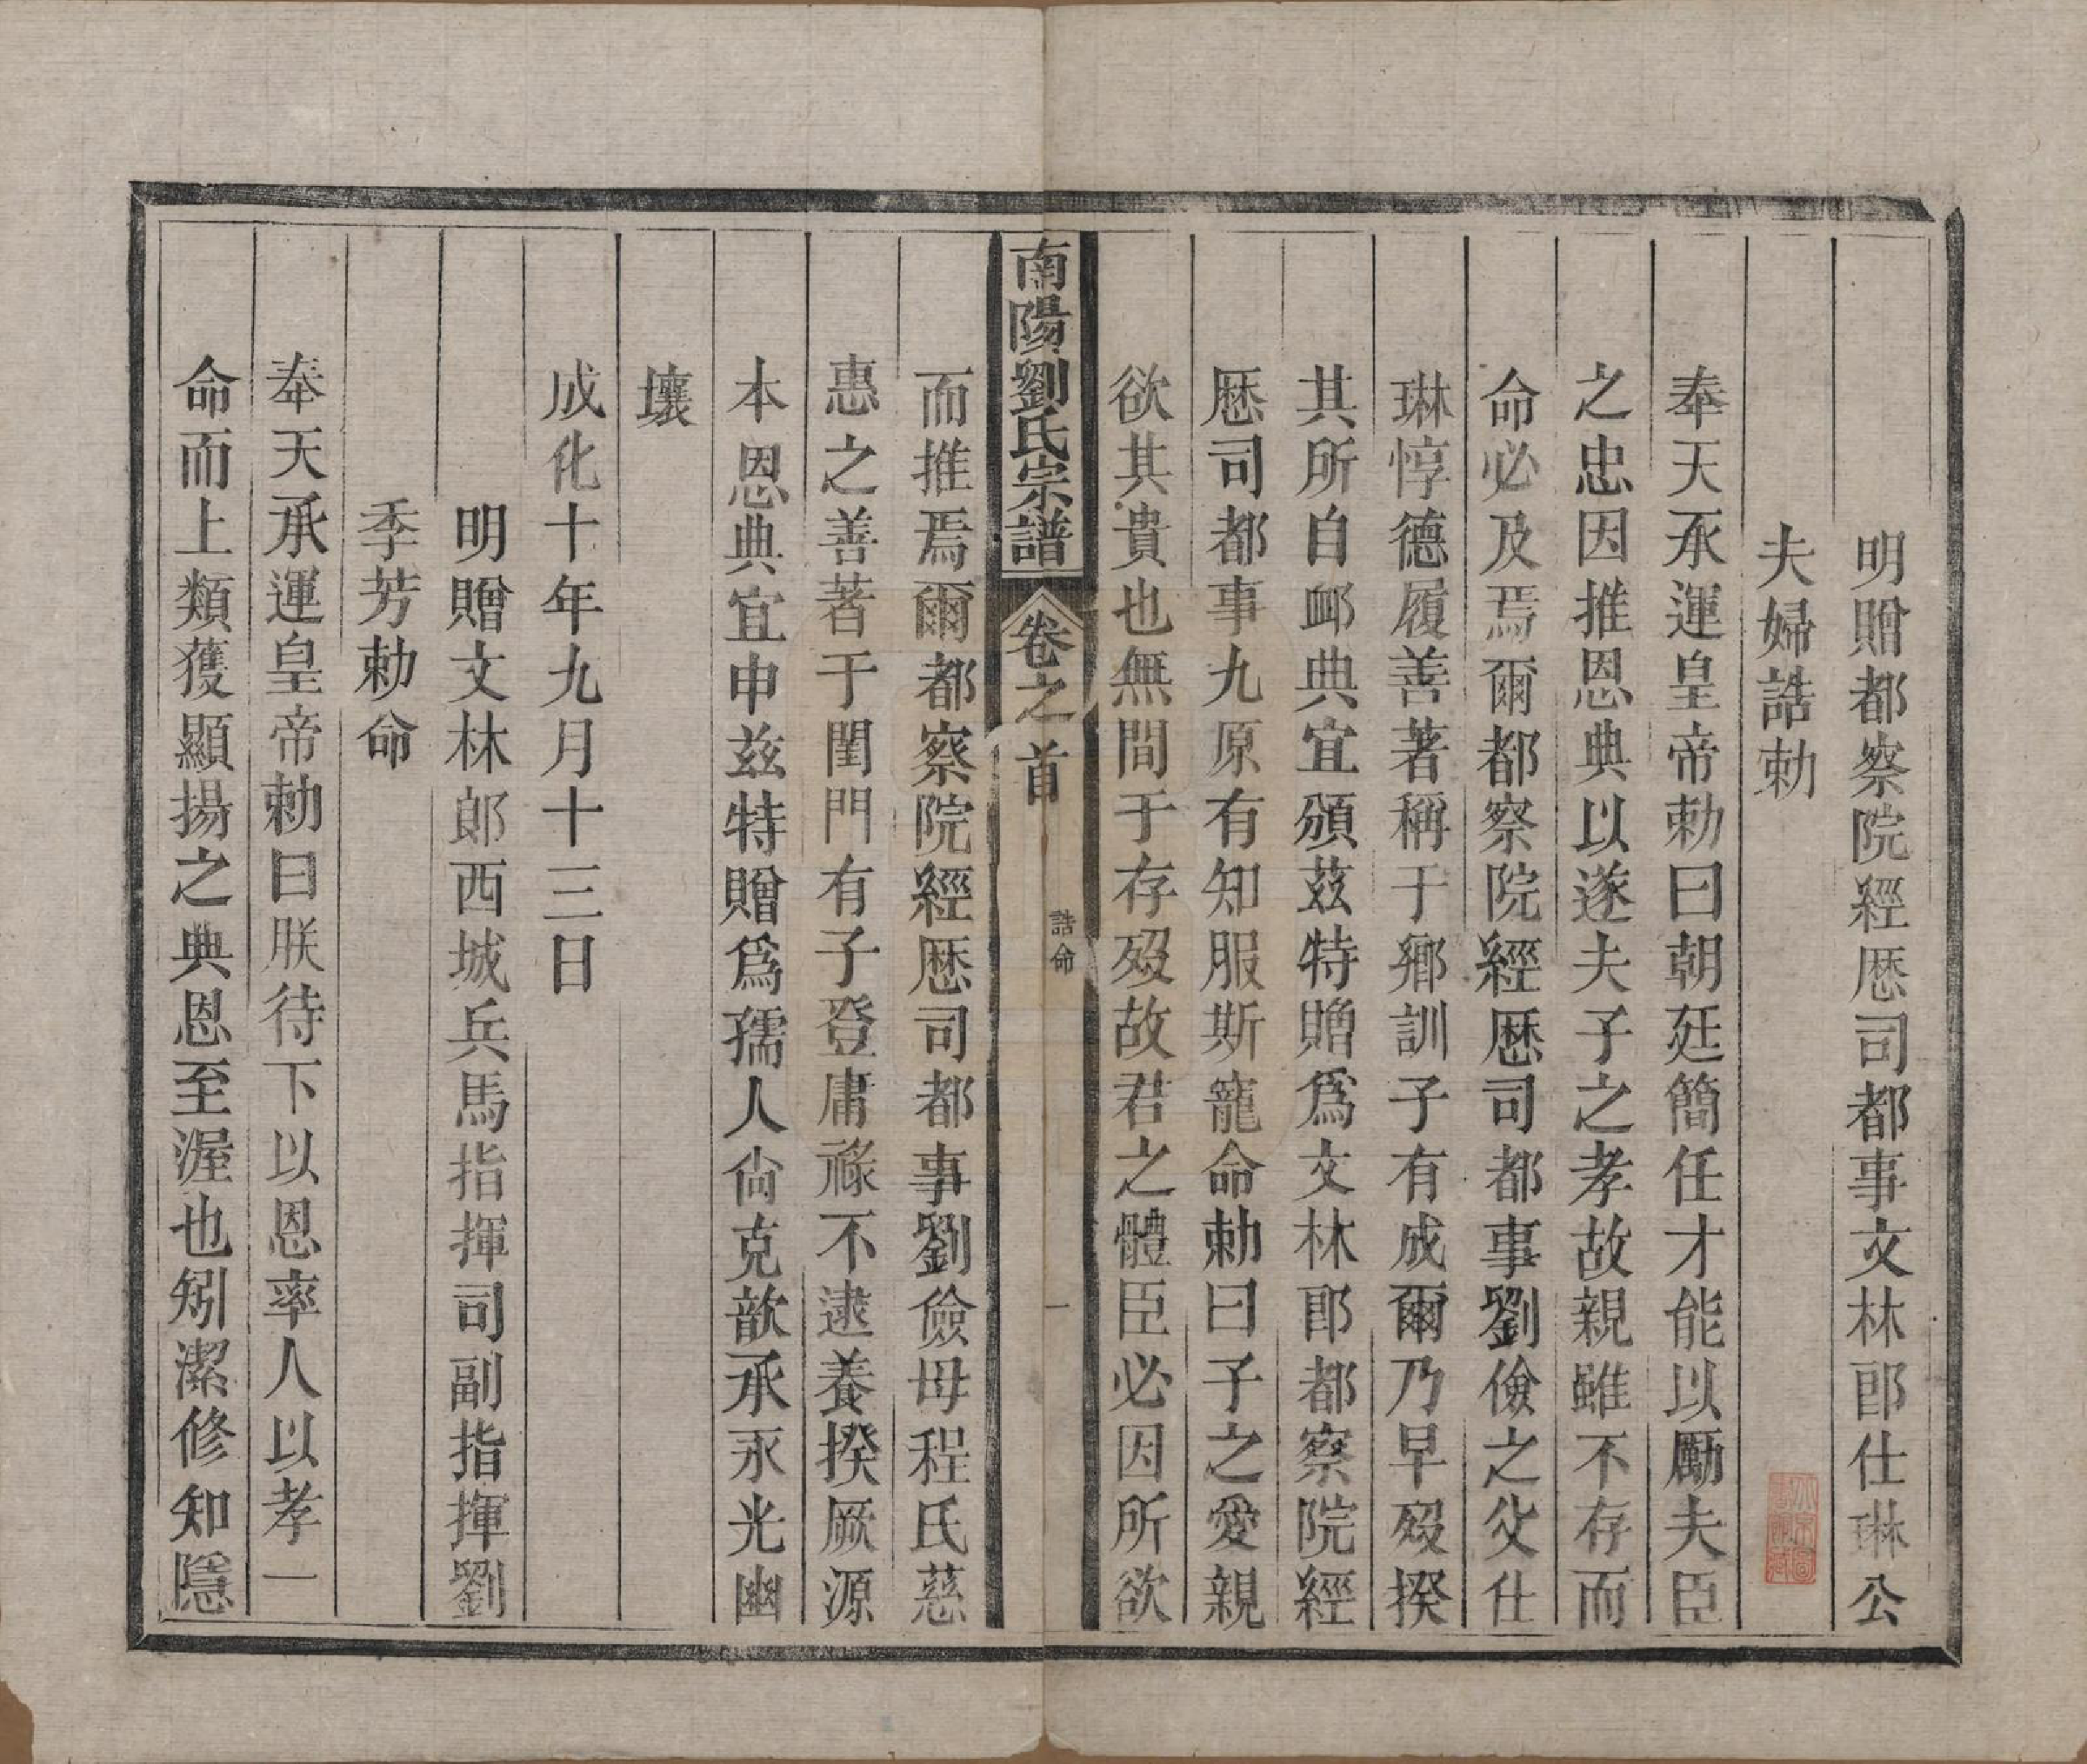 明贈都察院經厯司都事文林郎仕琳公
夫婦誥勅
奉天承運皇帝勅曰朝廷簡任才能以勵夫臣
之忠因推恩典以遂夫子之孝故親雖不存而
命必及焉爾都察院經厯司都事劉儉之父仕
琳惇德履善著稱于鄉訓子有成爾乃早歿揆
其所自䘏典宜頒茲特贈爲文林郎都察院經
厯司都事九原有知服斯寵命勅曰子之愛親
欲其貴也無間于存歿故君之體臣必因所欲
南陽劉氏宗譜 卷之首 誥命 一
而推焉爾都察院經厯司都事劉儉母程氏慈
惠之善著于閨門有子登庸祿不逮養揆厥源
本恩典宜申茲特贈爲孺人尙克歆承永光幽
壤
成化十年九月十三日
明贈文林郎西城兵馬指揮司副指揮劉
季芳勅命
奉天承運皇帝勅曰朕待下以恩率人以孝一
命而上類獲顯揚之典恩至渥也矧潔修知隱